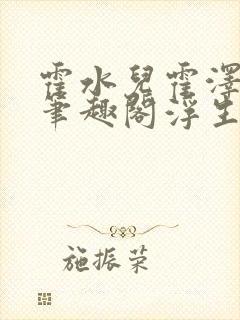 霍水兒霍澤
筆趣閣浮生
施振荣